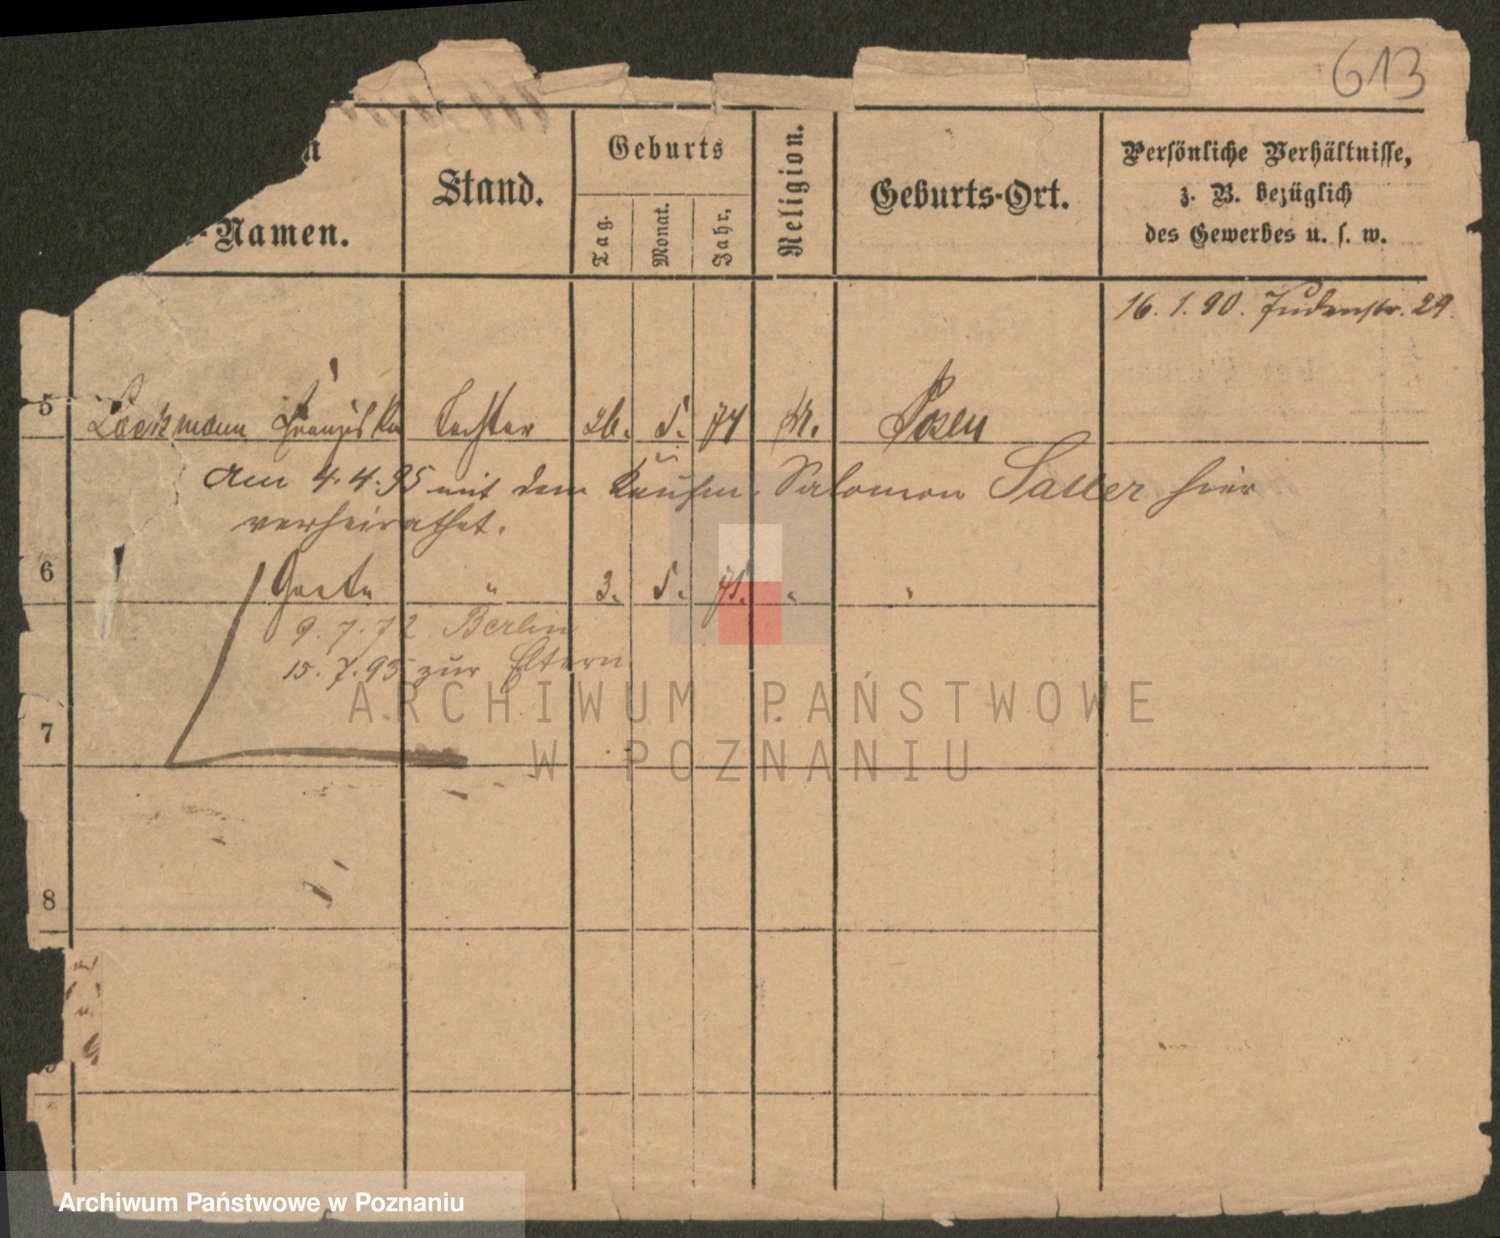 613
-Namen.
Stand.
Geburts
Tag.
Monat.
Jahr.
Religion.
Geburts-Ort.
Persönliche Verhältnisse,
z. B. bezüglich
des Gewerbes u. s. w.
16. 1. 90. Judenstr. 29.
5 Franziska Tochter 26. 5. 74 M. Posen
Am 4. 4. 95 mit dem Kaufm. Salomon hier
verheirathet.
6 " 3. 5. 75. " "
9. 7. 72 Berlin
15. 7. 95 zur Eltern
7
8
ARCHIWUM PAŃSTWOWE
W POZNANIU
Archiwum Państwowe w Poznaniu